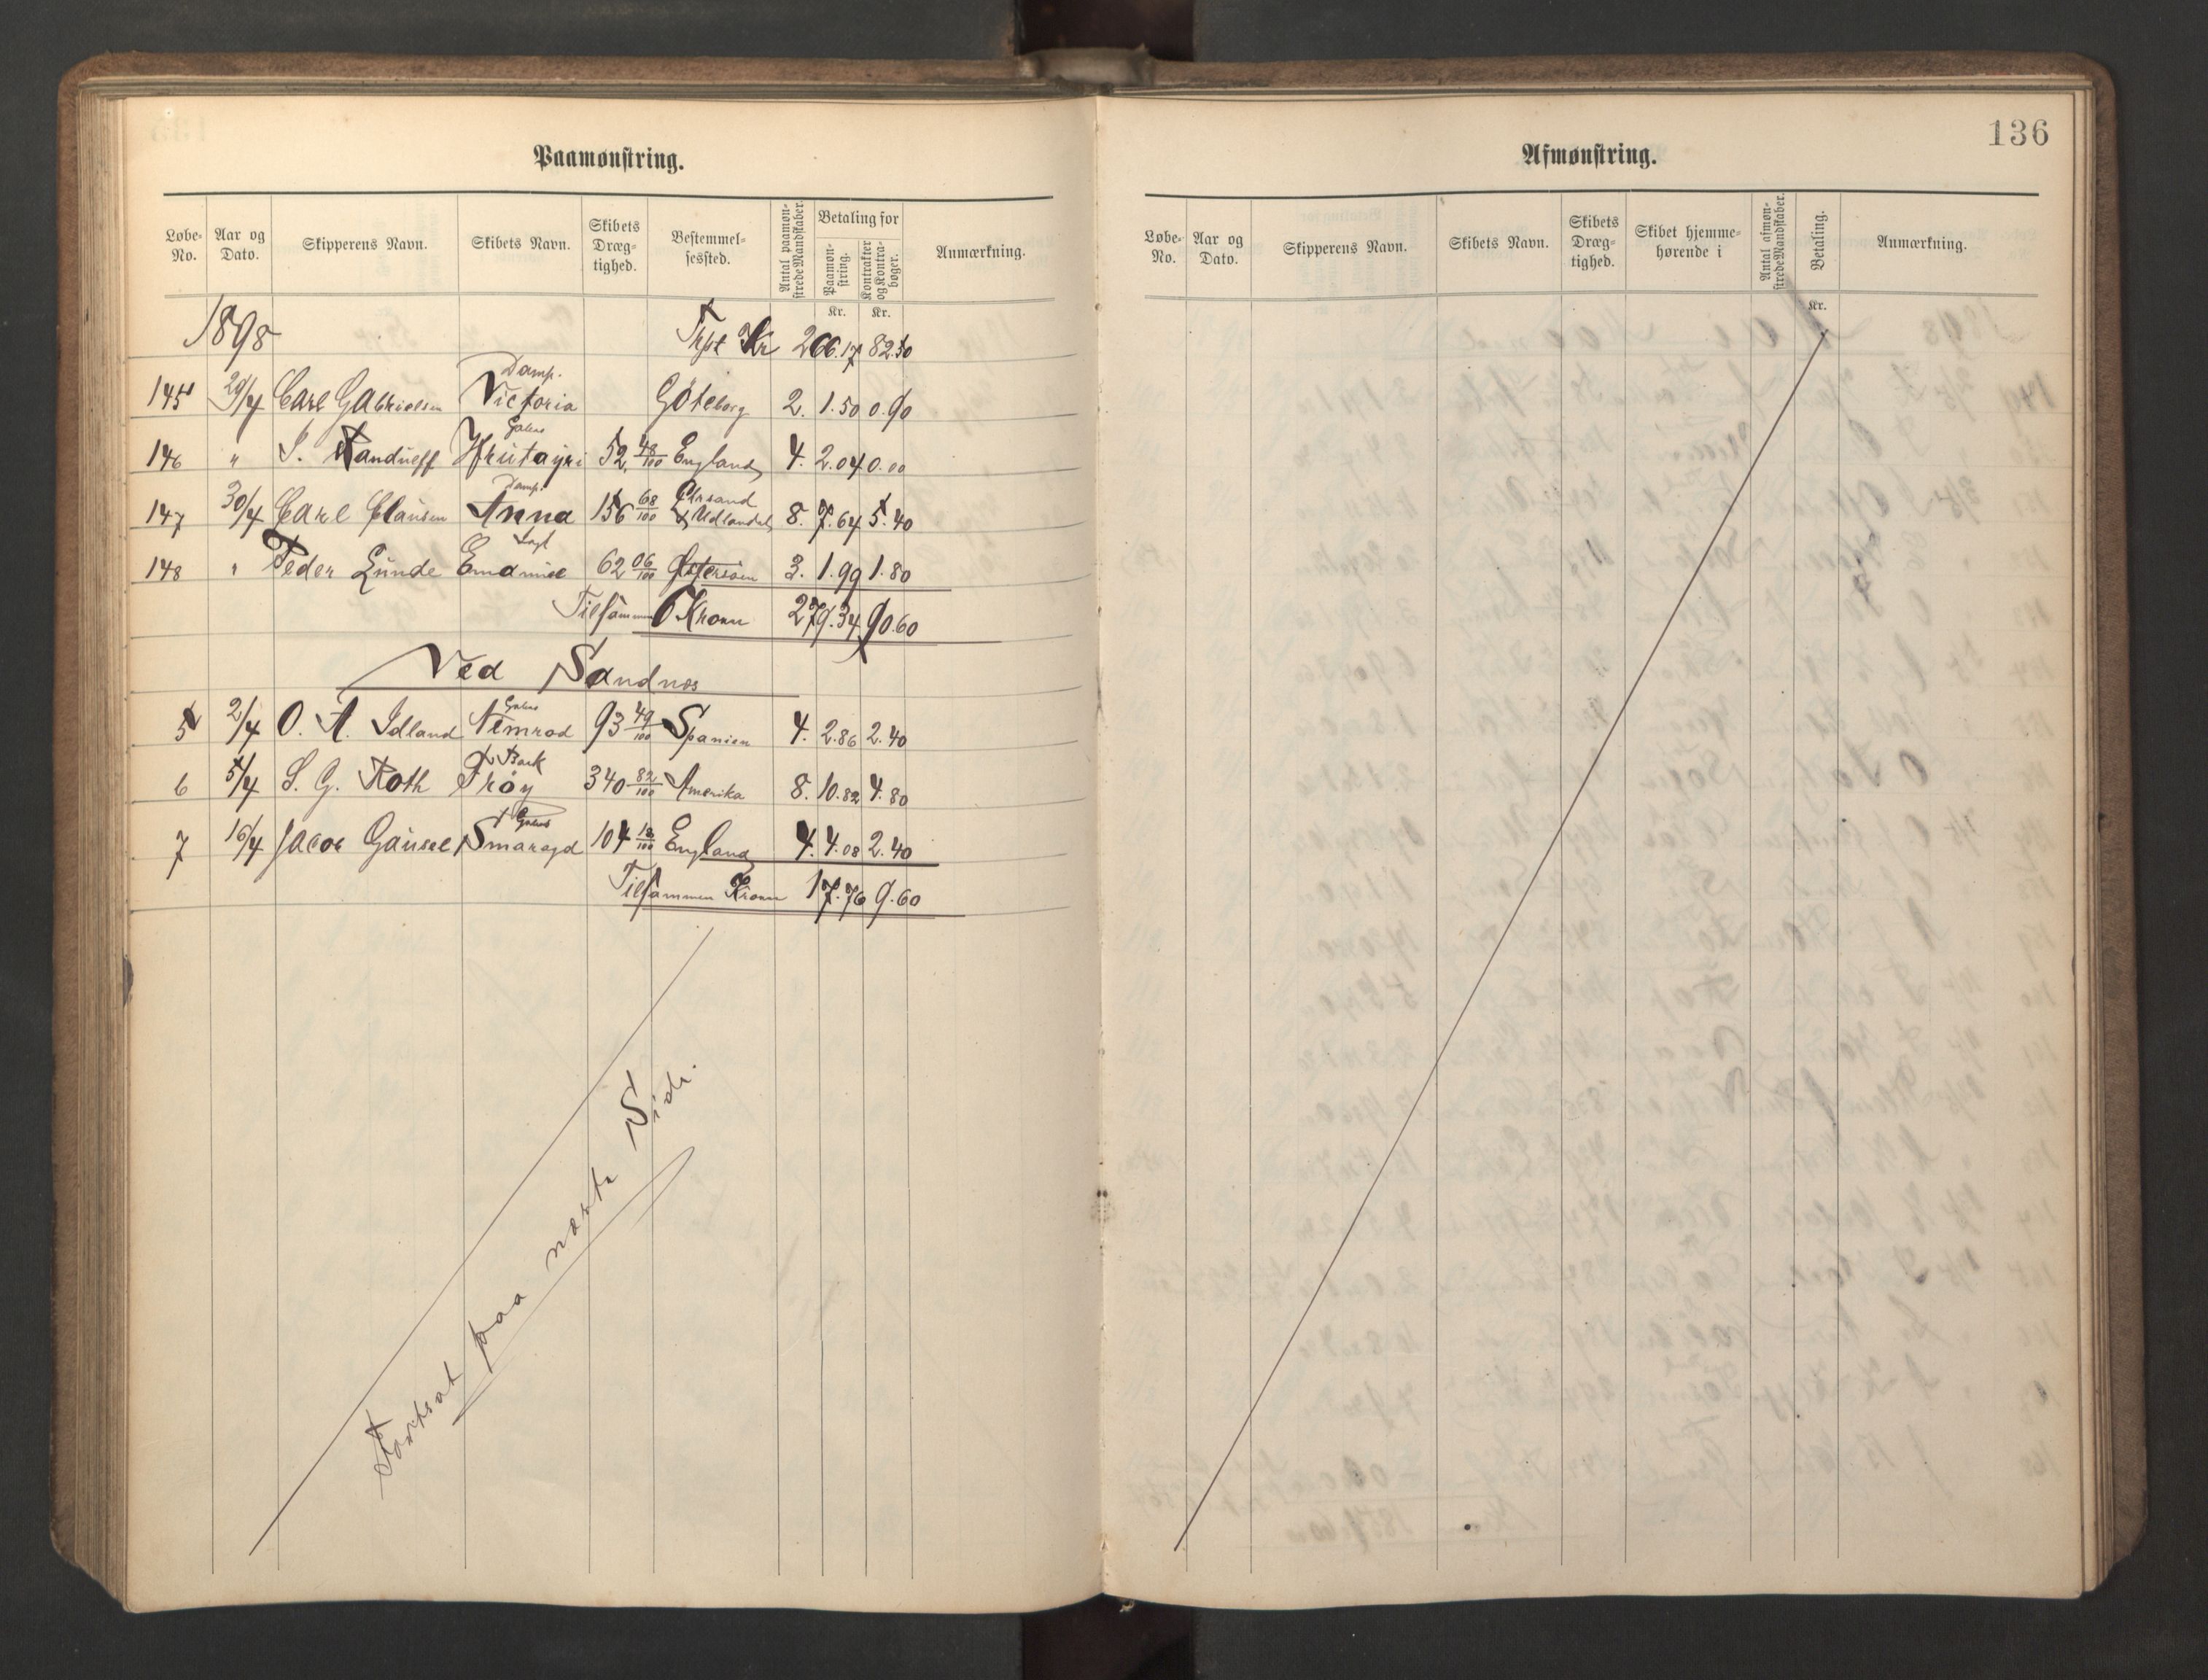 Paamønstring.
Løbe-No. Aar og Dato. Skipperens Navn. Skibets Navn. Skibets Dræg-tighed. Bestemmel-sessted. Antal paamøn-strede Mandskaber. Betaling for Paamøn-string. Kontrakter og Kontra-bøger. Anmærkning.
Kr. Kr.
1898 Trpt Kr 266.17 82.50
145 29/4 Carl Gabrielsen Damp. Victoria Göteborg 2. 1.50 0.90
146 " S. Randueff Galeas 52 48/100 England 4. 2.04 0.00
147 30/4 Carl Clausen Damp. Anna 156 68/100 Chrsand & Udlandet 8. 7.64 5.40
148 " Peder Lunde Jagt 62 06/100 Østersøen 3. 1.99 1.80
Tilsammen Kroner 279.34 90.60
Ved Sandnes
5 2/4 O. A. Idland Galeas Nemrod 93 49/100 Spanien 4. 2.86 2.40
6 5/4 S. G. Roth Bark Frøy 340 82/100 Amerika 8. 10.82 4.80
7 16/4 Jacob Gausel Galeas Smaragd 104 18/100 England 4. 4.08 2.40
Tilsammen Kroner 17.76 9.60
Fortsat paa næste Side.
136
Afmønstring.
Løbe-No. Aar og Dato. Skipperens Navn. Skibets Navn. Skibets Dræg-tighed. Skibet hjemme-hørende i Antal afmøn-strede Mandskaber. Betaling. Anmærkning.
Kr.